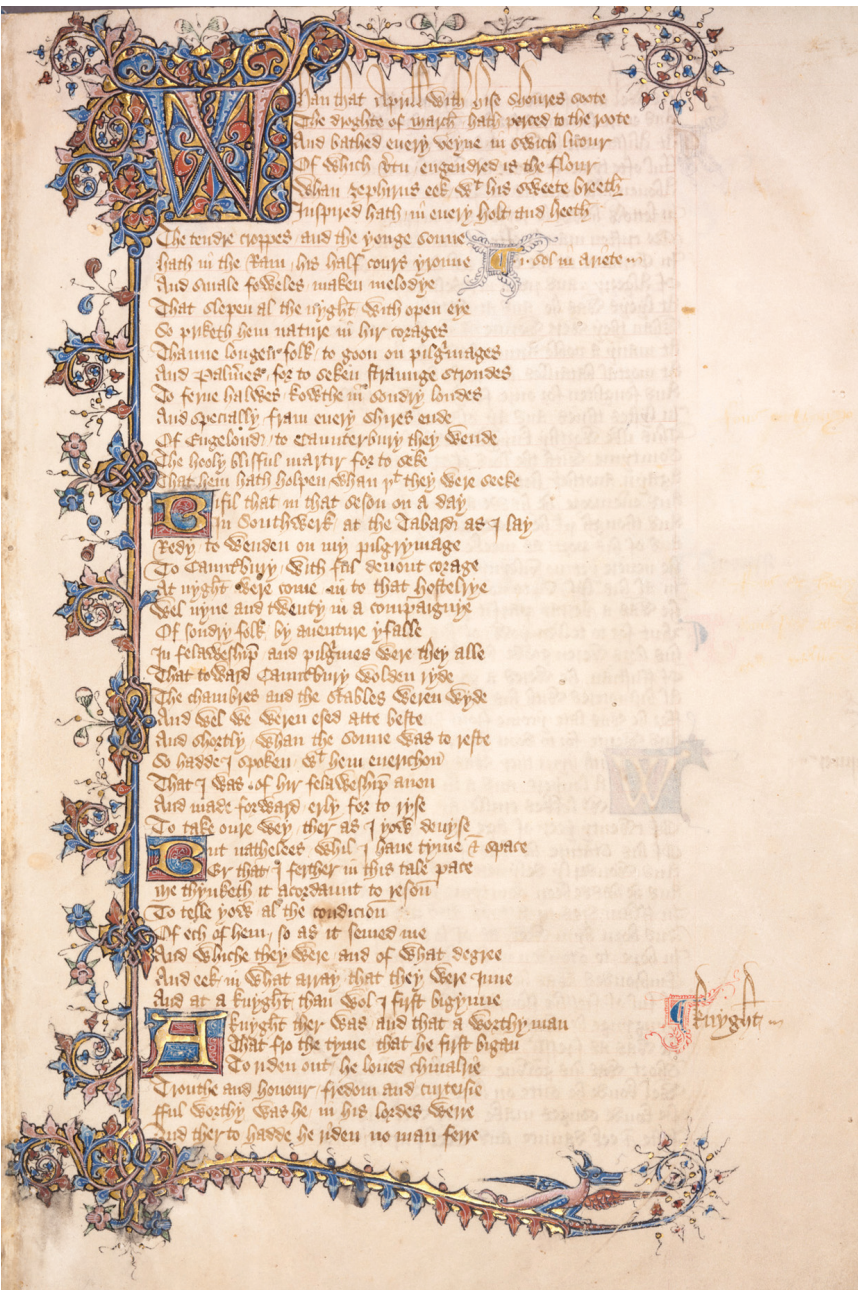 Whan that Aprill with hise shoures soote
The droghte of march hath perced to the roote
And bathed every veyne in swich licour
Of which vtu engendred is the flour
Whan zephirus eek wt his sweete breeth
Inspired hath in every holt and heeth
The tendre croppes and the yonge sonne
hath in the Ram his half cours yronne
.i. sol in ariete
And smale foweles maken melodye
That slepen al the nyght with open eye
So priketh hem nature in hir corages
Thanne longen folk to goon on pilgrimages
And Palmeres for to seken straunge strondes
To ferne halwes kowthe in sondry londes
And specially fram every shires ende
Of Engelond to Caunterbury they wende
The hooly blisful martir for to seke
That hem hath holpen whan þt they were seeke
Bifil that in that seson on a day
In Southwerk at the Tabard as I lay
Redy to wenden on my pilgrymage
To Caunterbury with ful deuout corage
At nyght were come in to that hostelrye
Wel nyne and twenty in a compaignye
Of sondry folk by auenture yfalle
In felaweshipe and pilgrimes were they alle
That toward Caunterbury wolden ryde
The chambres and the stables weren wyde
And wel we weren esed atte beste
And shortly whan the sonne was to reste
So hadde I spoken wt hem euerichon
That I was of hir felaweshipe anon
And made forward erly for to ryse
To take oure wey ther as I yow deuyse
But nathelees whil I haue tyme & space
Er that I ferther in this tale pace
me thynketh it acordaunt to reson
To telle yow al the condicion
Of ech of hem so as it semed me
And whiche they were and of what degree
And eek in what array that they were inne
And at a knyght than wol I first bigynne
A knyght ther was and that a worthy man
knyght
That fro the tyme that he first bigan
To riden out he loued chiualrie
Trouthe and honour fredom and curteisie
fful worthy was he in his lordes werre
And therto hadde he riden no man ferre